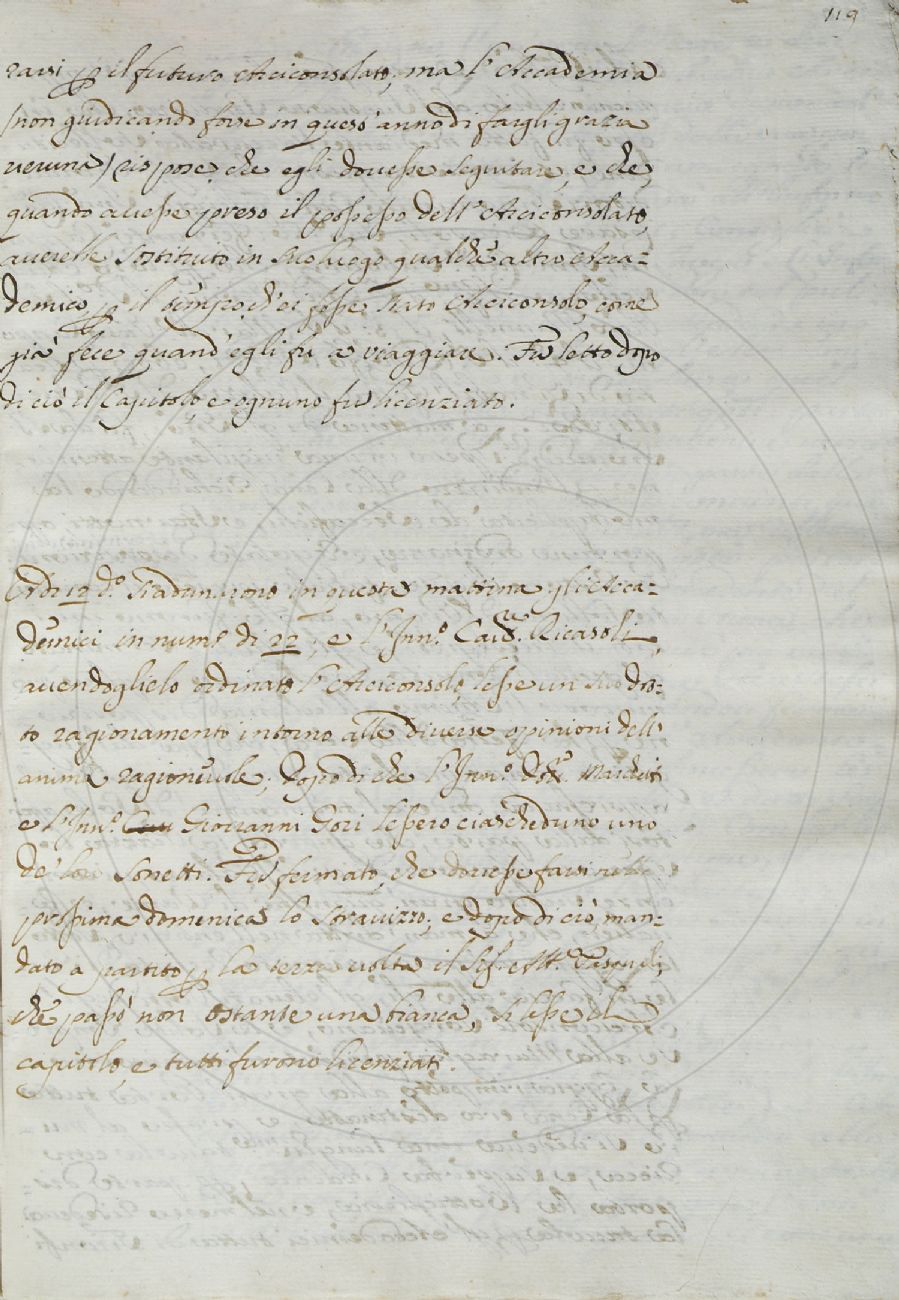 119
rarsi p il futuro Arciconsolato, ma l'Accademia
(non giudicando forse in quest'anno di fargli grazia
veruna) rispose che egli dovesse seguitare, e che,
quando avesse preso il possesso dell'Arciconsolato,
averebbe sostituito in suo luogo qualche altro Acca-
demico p il tempo, ch'ei fosse stato Arciconsolo, come
già fece quand'egli fu a viaggiare. Fu letto dopo
di ciò il Capitolo, e ognuno fu licenziato.
Adì 12 dº. Si adunarono in questa mattina gli Acca-
demici in numº di 22, e l'Innº. Cav.re Ricasoli,
avendoglielo ordinato l'Arciconsolo, lesse un suo dot-
to ragionamento intorno alle diverse opinioni dell'
anima ragionevole; dopo di che l'Innº.
e l'Innº. Giovanni Gori lessero ciascheduno uno
de' loro Sonetti. Fu fermato, che dovesse farsi nella
prossima domenica lo Stravizzo, e dopo di ciò, man-
dato a partito p la terza volta il Sig.
che passò non ostante una bianca, si lesse il
capitolo, e tutti furono licenziati.